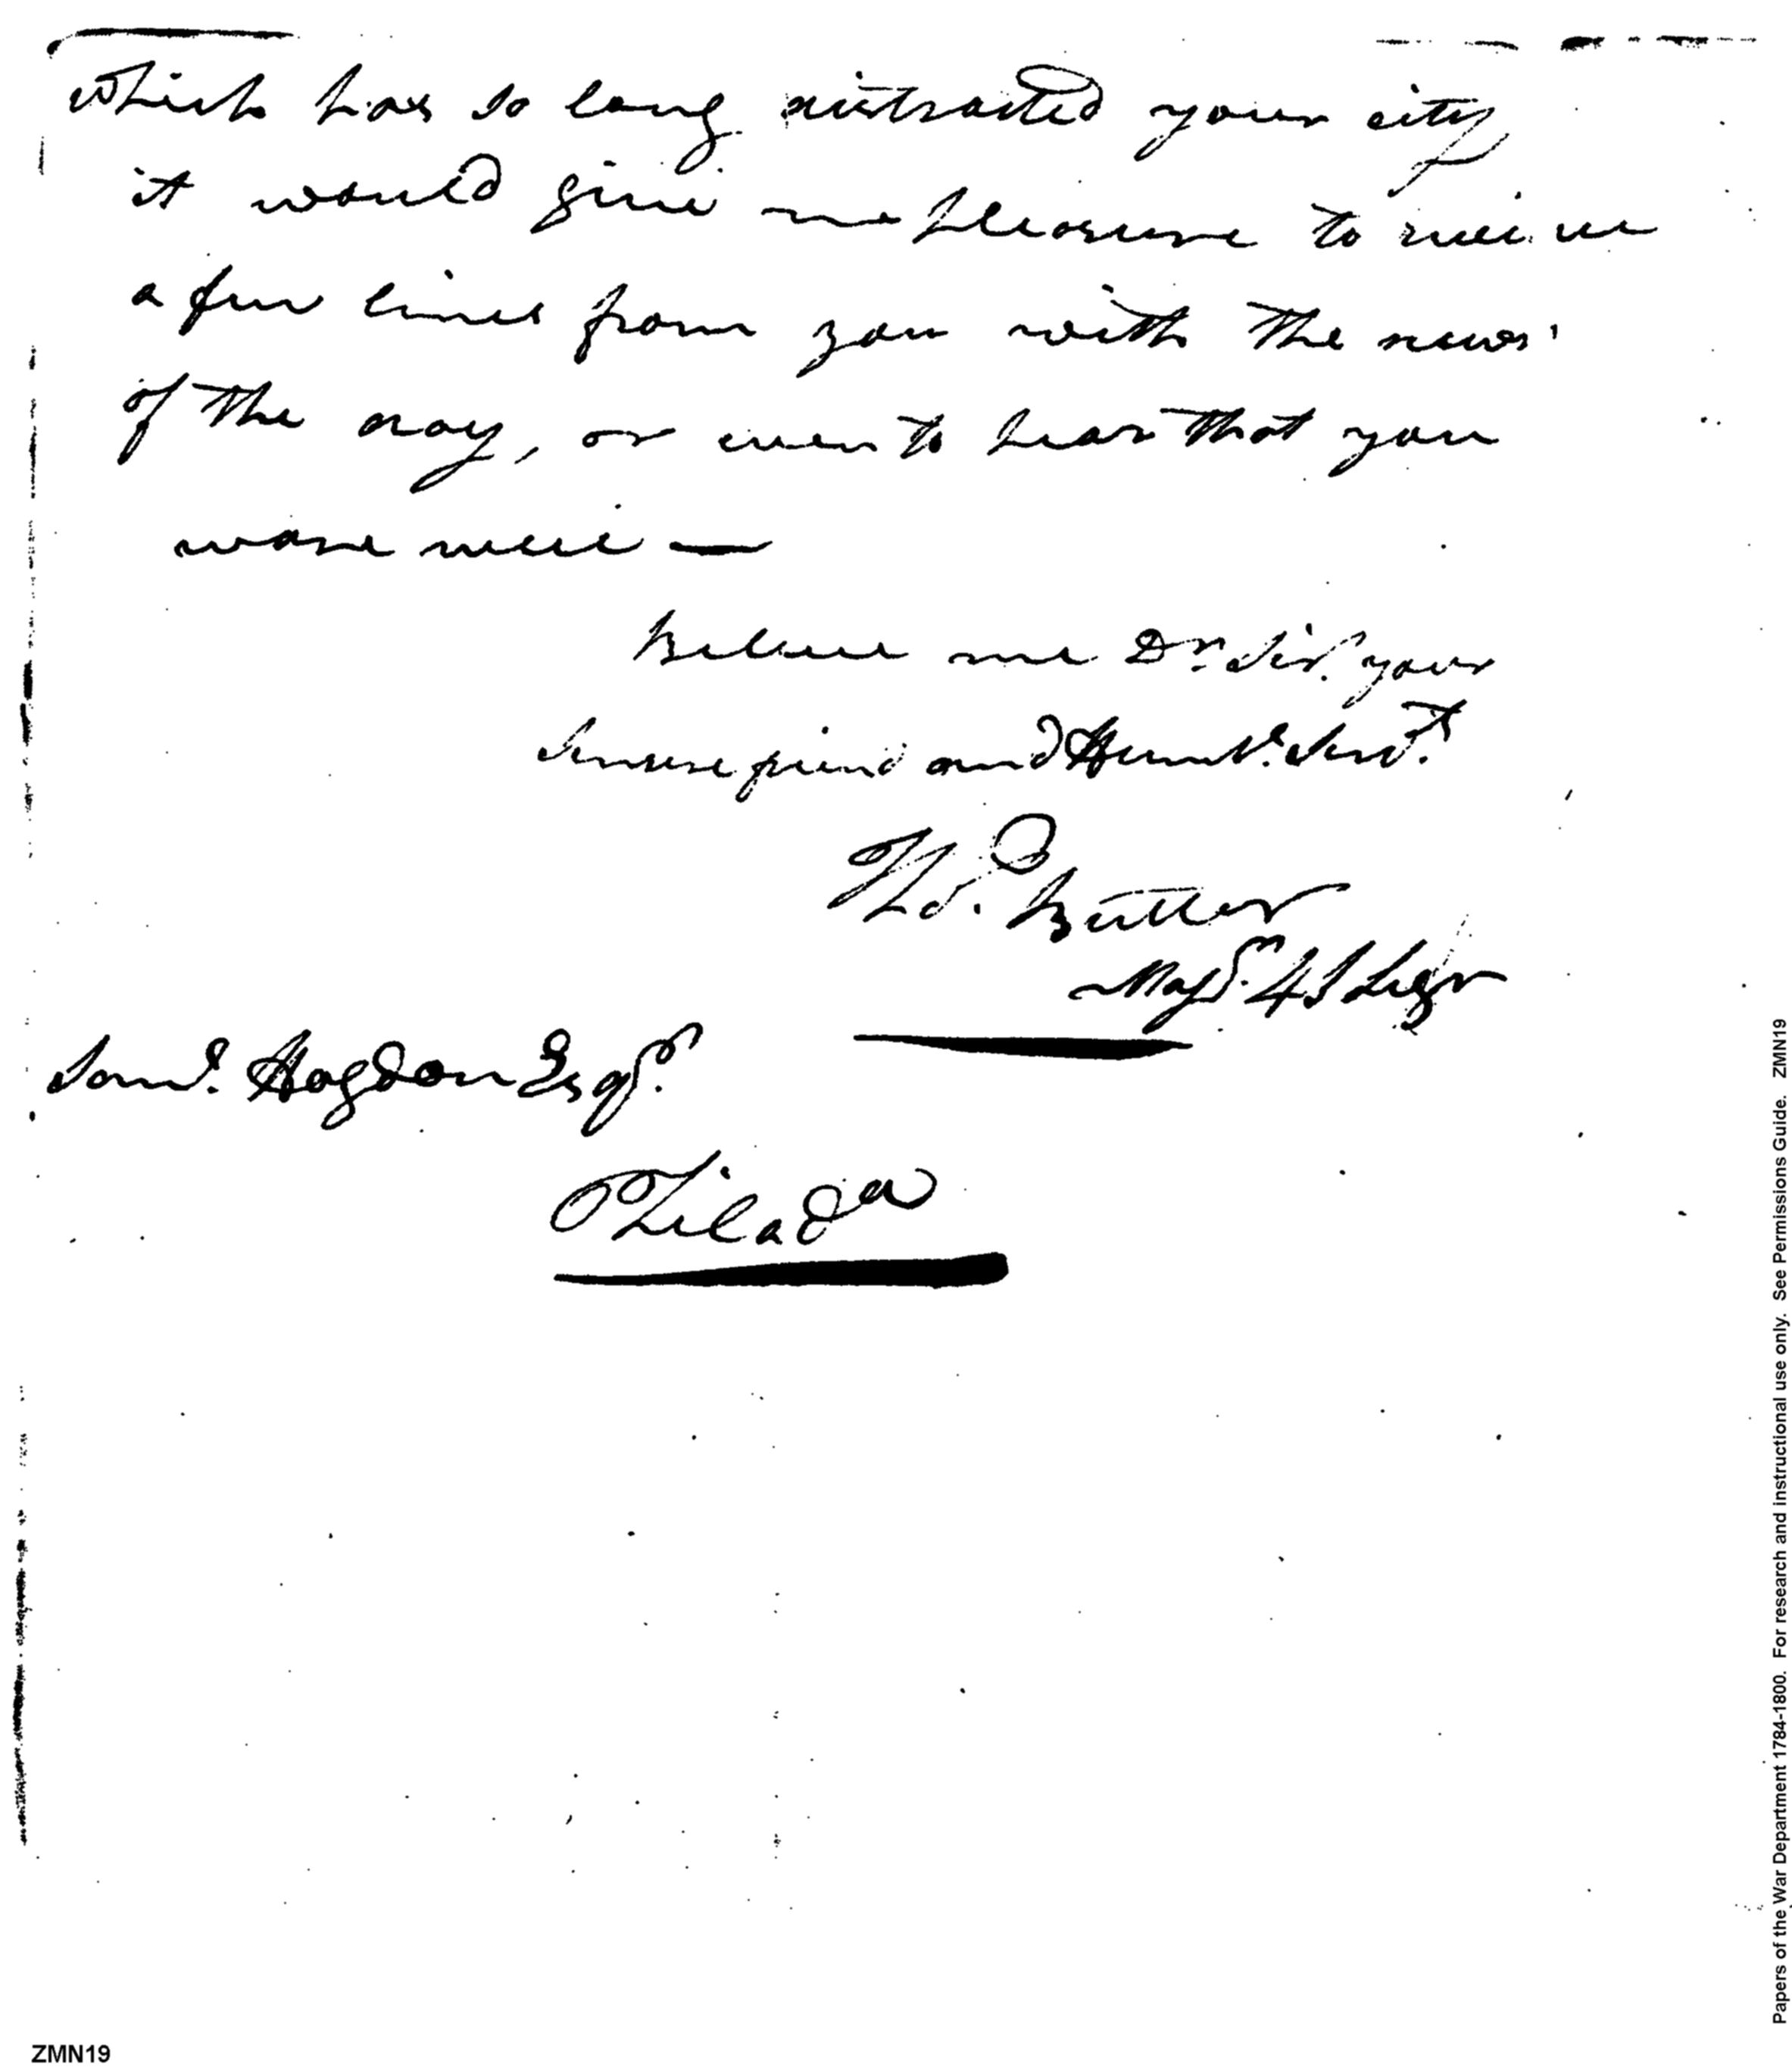 which has so long distracted your city
it would give me pleasure to receive
a few lines from you with the news
of the day, or even to hear that you
ware well —
Believe me Dr. Sir. your
sincere friend and Humbe. Servt.
Butler
Majr. 4 S Legn
Saml. Hogdon Esqr.
Philada
Papers of the War Department 1784-1800. For research and instructional use only. See Permissions Guide. ZMN19
ZMN19